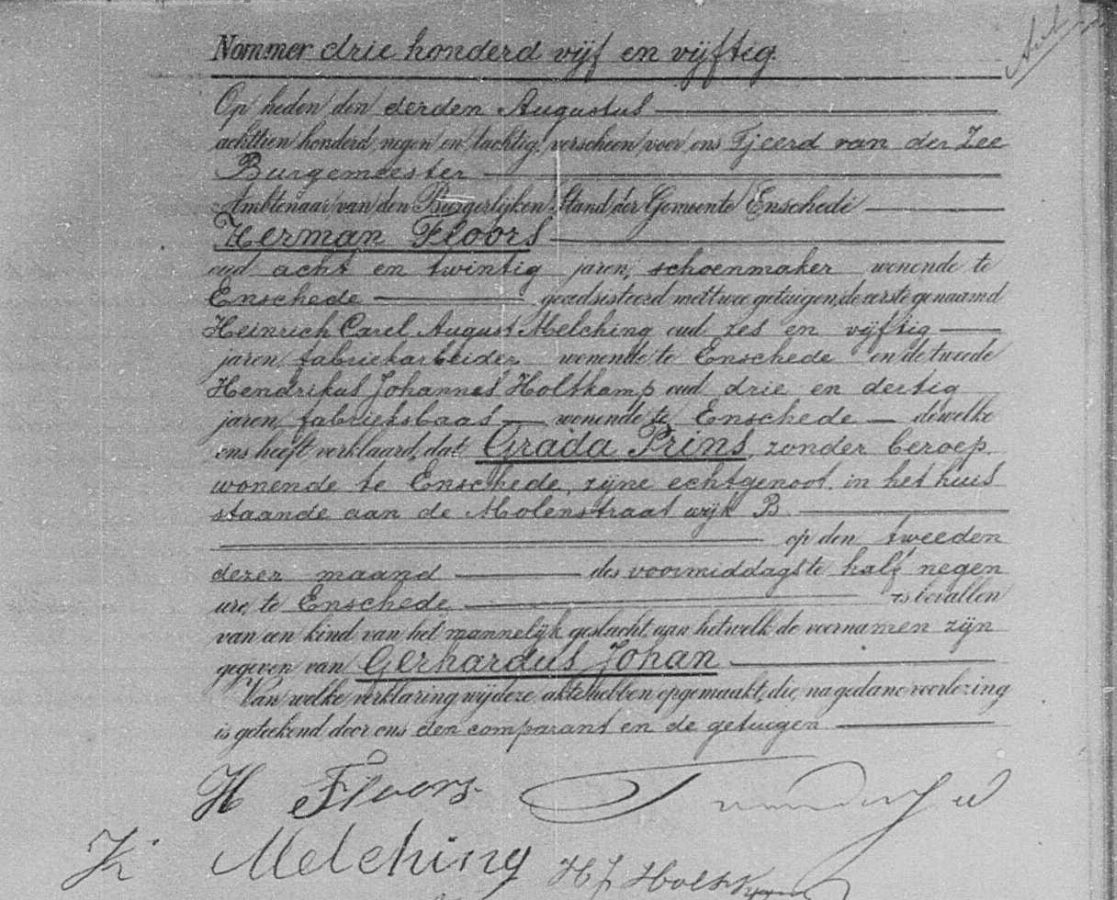 Nommer drie honderd vijf en vijftig.
Op heden den derden Augustus
achttien honderd negen en tachtig, verscheen voor ons Tjeerd van der Zee
Burgemeester
Ambtenaar van den Burgerlijken Stand der Gemeente Enschede
Herman Floors
oud acht en twintig jaren, schoenmaker wonende te
Enschede geadsisteerd met twee getuigen, de eerste genaamd
Heinrich Carel August Melching oud zes en vijftig
jaren, fabriekarbeider, wonende te Enschede en de tweede
Hendrikus Johannes Holtkamp oud drie en dertig
jaren, fabrieksbaas wonende te Enschede dewelke
ons heeft verklaard, dat Grada Prins, zonder beroep,
wonende te Enschede, zijne echtgenoot, in het huis
staande aan de Molenstraat wijk B.
op den tweeden
dezer maand des voormiddags te half negen
ure, te Enschede is bevallen
van een kind van het mannelijk geslacht, aan hetwelk de voornamen zijn
gegeven van Gerhardus Johan
Van welke verklaring wij deze akte hebben opgemaakt, die, na gedane voorlezing
is geteekend door ons den comparant en de getuigen
H Floors.
Melching
H J Holtkamp